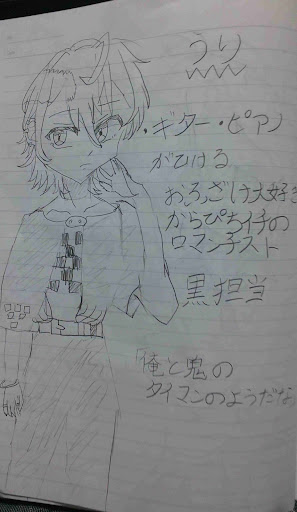 うり
・ギター・ピアノ
がひける
おふざけ大好き
からぴちイチの
ロマンチスト
黒担当
「俺と鬼の
タイマンのようだな